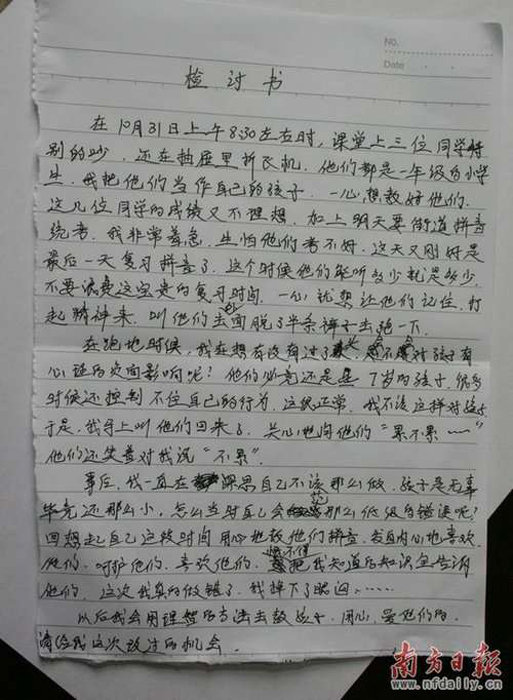 No.
Date
检讨书
在10月31日上午8:30左右时,课堂上三位同学特
别的吵,还在抽屉里折飞机,他们都是一年级的小学
生,我把他们当作自己的孩子,一心想教好他们,
这几位同学的成绩又不理想,加上明天要街道拼音
统考,我非常着急,生怕他们考不好,这天又刚好是
最后一天复习拼音了,这个时候他们能听多少就是多少,
不要浪费这宝贵的复习时间,一心就想让他们记住,打
起精神来,叫他们去外面脱了半条裤子去跑一下,
在跑地时候,我在想有没有过了火,会不会对孩子有
心理的负面影响呢?他们必竟还是 7岁的孩子,很多
时候还控制不住自己的行为,这很正常,我不该这样对孩子
于是,我马上叫他们回来了,关心地问他们“累不累……”
他们还笑着对我说“不累”。
事后,我一直在深思自己不该那么做,孩子是无辜
毕竟还那么小,怎么当时自己会犯那么低级的错误呢?
回想起自己这段时间用心地教他们拼音,发自内心地喜欢
他们,呵护他们,喜欢他们,恨不得把我知道的知识全告诉
他们,这次我真的做错了,我掉下了眼泪……
以后我会用理智的方法去教孩子,用心,爱他们的,
请给我这次改过的机会.
南方日报
www.nfdaily.cn